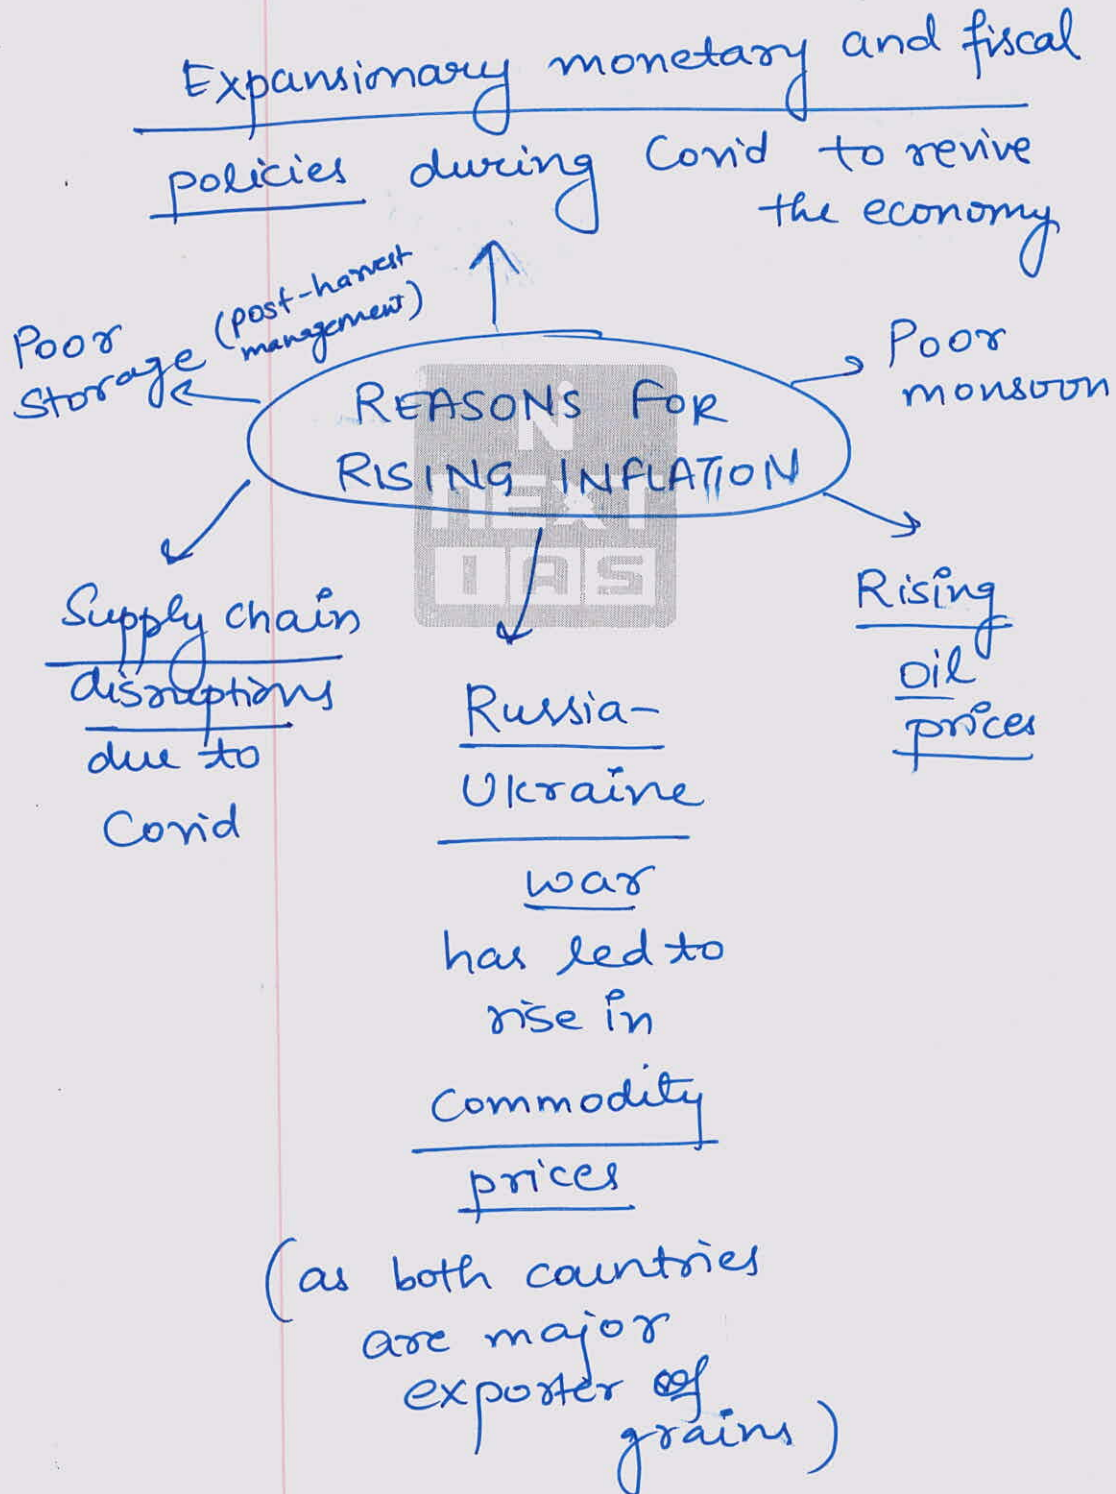 Expansionary monetary and fiscal
policies during Covid to revive
the economy
Poor
Storage (post-harvest
management)
Poor
monsoon
REASONS FOR
RISING INFLATION
N
NEXT
IAS
Supply chain
disruptions
due to
Covid
Russia-
Ukraine
war
has led to
rise in
Commodity
prices
(as both countries
are major
exporter of
grains)
Rising
oil
prices